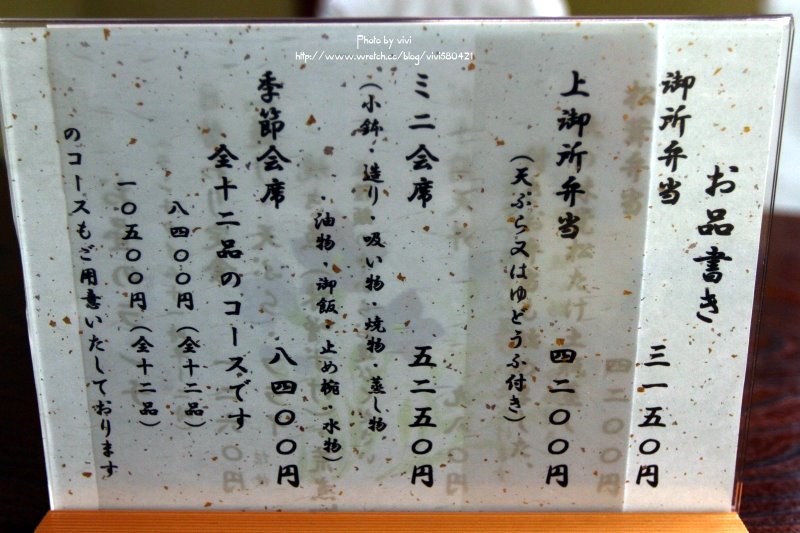 Photo by vivi
http://www.wretch.cc/blog/vivi580421
お品書き
御所弁当 三一五〇円
上御所弁当 四二〇〇円
（天ぷら又はゆどうふ付き）
ミニ会席 五二五〇円
（小鉢・造り・吸い物・焼物・蒸し物
・油物・御飯・止め椀・水物）
季節会席 八四〇〇円
全十二品のコースです
八四〇〇円（全十二品）
一〇五〇〇円（全十二品）
のコースもご用意いたしております